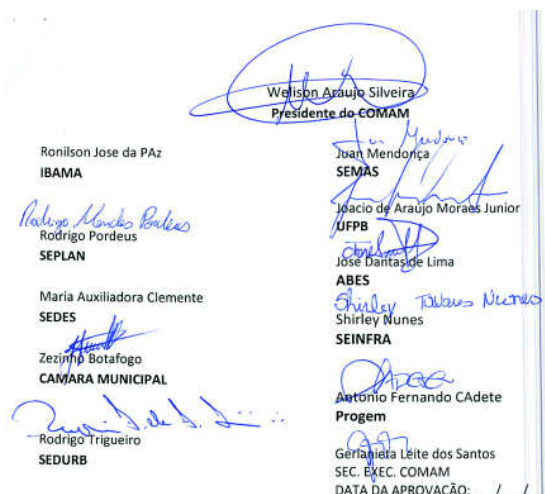 Welison Araujo Silveira
Presidente do COMAM
Ronilson Jose da PAz
IBAMA
Rodrigo Mendes Pordeus
Rodrigo Pordeus
SEPLAN
Maria Auxiliadora Clemente
SEDES
Zezinho Botafogo
CAMARA MUNICIPAL
Rodrigo Trigueiro
SEDURB
Juan Mendonça
Juan Mendonça
SEMAS
Joacio de Araujo Morais Junior
UFPB
José Dantas de Lima
ABES
Shirley Tavares Nunes
Shirley Nunes
SEINFRA
Antonio Fernando CAdete
Progem
Gerlanieta Leite dos Santos
SEC. EXEC. COMAM
DATA DA APROVAÇÃO: / /